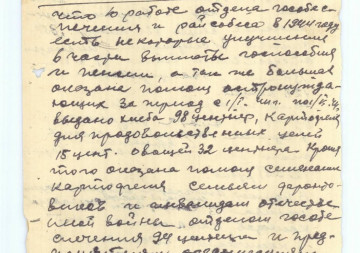 что в работе отдела гособес-
печения и райсобеса в 1944 году
есть некоторые улучшения
в части выплаты госпособия
и пенсии, а так же большая
оказана помощь
за период с
выдано хлеба 98 центнер, картофеля
для продовольственных целей
15 цент. овощей 32 центнера кроме
того оказана помощь семенами
картофеля семьям фронто-
виков и инвалидам отечестве
ной войны отделом гособе
спечения 24 центнер и пред-